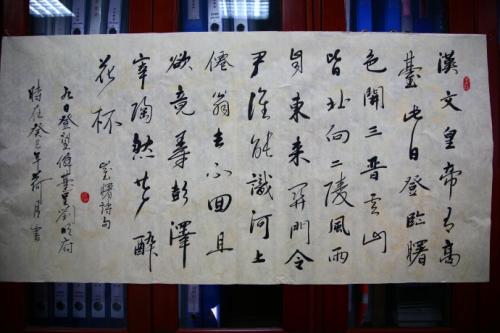 漢文皇帝有高
臺此日登臨曙
色開三晉云山
皆北向二陵風雨
自東來關門令
尹誰能識河上
僊翁去不回且
欲竟尋彭澤
宰陶然共醉
花杯 崔曙詩句
九日登望僊臺呈劉明府
時在癸巳年荷月書